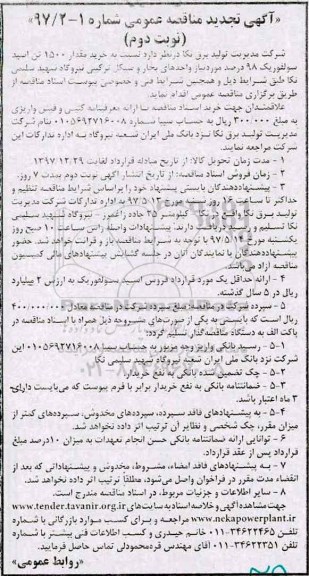 «آگهی تجدید مناقصه عمومی شماره ۱-۹۷/۲»
(نوبت دوم)
شرکت مدیریت تولید برق نکا درنظر دارد نسبت به خرید مقدار ۱۵۰۰ تن اسید
سولفوریک ۹۸ درصد موردنیاز واحدهای بخار و سیکل ترکیبی نیروگاه شهید سلیمی
نکا طبق شرایط ذیل و همچنین شرایط فنی و خصوصی پیوست اسناد مناقصه از
طریق برگزاری مناقصه عمومی اقدام نماید.
علاقمندان جهت خرید اسناد مناقصه با ارائه معرفینامه کتبی و فیش واریزی
به مبلغ ۳۰۰،۰۰۰ ریال به حساب سیبا شماره ۰۱۰۵۶۹۲۷۱۶۰۰۸ بنام شرکت
مدیریت تولید برق نکا نزد بانک ملی ایران شعبه نیروگاه به اداره تدارکات این
شرکت مراجعه نمایند.
۱ - مدت زمان تحویل کالا: از تاریخ مبادله قرارداد لغایت ۱۳۹۷/۱۲/۲۹
۲ - زمان فروش اسناد مناقصه: از تاریخ انتشار آگهی نوبت دوم بمدت ۷ روز.
۳ - پیشنهاددهندگان بایستی پیشنهاد خود را براساس شرایط مناقصه تنظیم و
حداکثر تا ساعت ۱۴ روز شنبه مورخ ۹۷/۵/۱۳ به اداره تدارکات شرکت مدیریت
تولید برق نکا واقع در نکا - کیلومتر ۲۵ جاده زاغمرز - نیروگاه شهید سلیمی
نکا تسلیم و رسید دریافت دارند. پیشنهادات واصله راس ساعت ۱۰ صبح روز
یکشنبه مورخ ۹۷/۵/۱۴ با توجه به شرایط مناقصه باز و قرائت خواهد شد. حضور
پیشنهاددهندگان یا نمایندگان آنان در جلسه گشایش پیشنهادهای مالی کمیسیون
مناقصه آزاد می‌باشد.
۴ - ارائه حداقل یک مورد قرارداد فروش اسید سولفوریک به ارزش ۲ میلیارد
ریال در ۵ سال گذشته.
۵ - سپرده شرکت در مناقصه: مبلغ سپرده شرکت در مناقصه معادل ۴۰۰،۰۰۰،۰۰۰
ریال است که بایستی به یکی از صورت‌های مشروحه ذیل همراه با اسناد مناقصه در
پاکت الف به دستگاه مناقصه‌گذار تسلیم گردد:
۱-۵ - رسید بانکی واریز وجه مزبور به حساب سیبا ۰۱۰۵۶۹۲۷۱۶۰۰۸ این
شرکت نزد بانک ملی ایران شعبه نیروگاه شهید سلیمی نکا.
۲-۵ - چک تضمین شده بانکی به نفع خریدار.
۳-۵ - ضمانتنامه بانکی به نفع خریدار برابر با فرم پیوست که می‌بایست دارای
۳ ماه اعتبار باشد.
۴-۵ - به پیشنهادهای فاقد سپرده، سپرده‌های مخدوش، سپرده‌های کمتر از
میزان مقرر، چک شخصی و نظایر آن ترتیب اثر داده نخواهد شد.
۶ - توانایی ارائه ضمانتنامه بانکی حسن انجام تعهدات به میزان ۱۰درصد مبلغ
قرارداد پس از عقد قرارداد.
۷ - به پیشنهادهای فاقد امضاء، مشروط، مخدوش و پیشنهاداتی که بعد از
انقضاء مدت مقرر در فراخوان واصل می‌شود، مطلقاً ترتیب اثر داده نخواهد شد.
۸ - سایر اطلاعات و جزئیات مربوط، در اسناد مناقصه مندرج است.
جهت مشاهده آگهی و خلاصه اسناد به سایت‌های www.tender.tavanir.org.ir و
www.nekapowerplant.ir مراجعه و برای کسب موارد بازرگانی با شماره
تلفن ۳۴۶۲۲۴۶۵-۰۱۱ خانم حیدری و کسب اطلاعات فنی بیشتر با شماره
تلفن ۳۴۶۲۲۳۵۱-۰۱۱ آقای مهندس قره‌محمودلی تماس حاصل فرمایید.
«روابط عمومی»